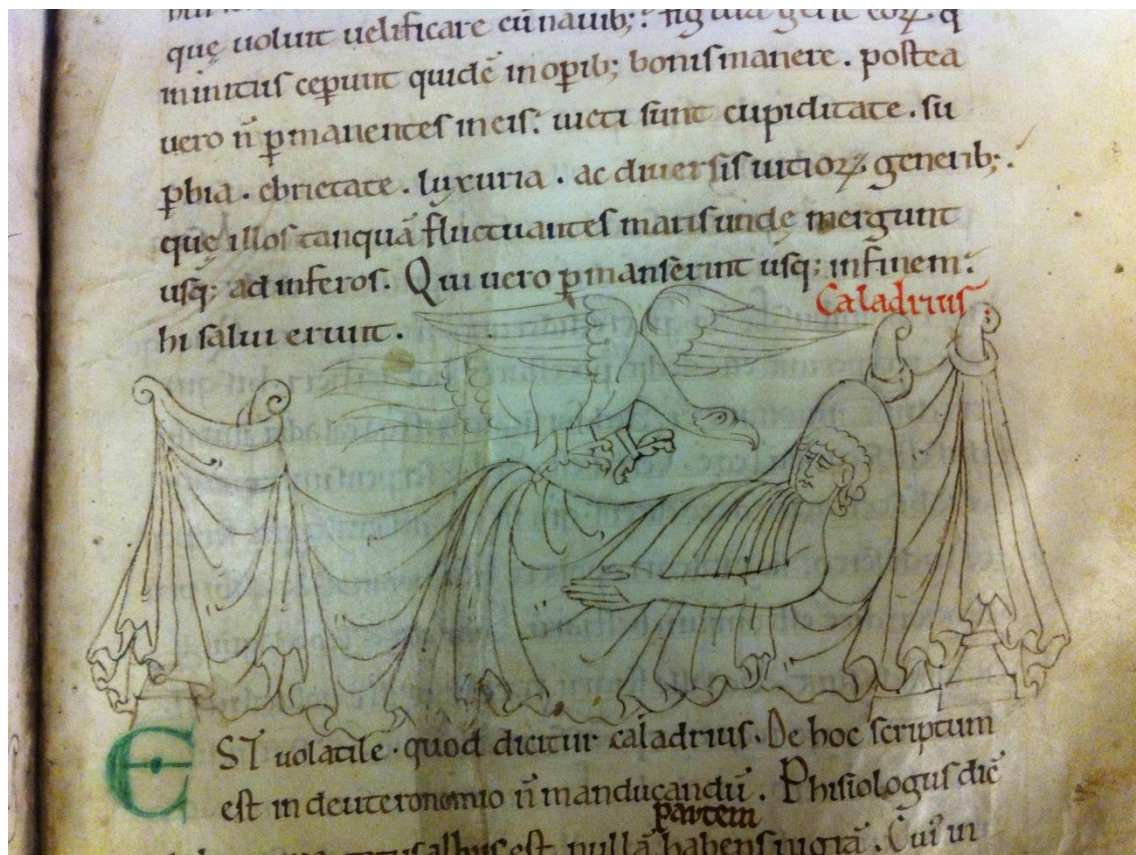 que uoluit uelificare cũ nauib;: figura gerit eoꝝ. q
inmitiis ceperunt quidẽ in oꝑib; bonis manere. postea
uero ñ ꝑmanentes in eis: uicti sunt cupiditate. su
ꝑbia. ebrietate. luxuria. ac diuersis uitioꝝ generib;.
quę illos tanquã fluctuantes maris undę mergunt
usq; ad inferos. Qui uero ꝑmanserint usq; in finem:
hi salui erunt.
Caladrius.
EST uolatile. quod dicitur caladrius. De hoc scriptum
est in deuteronomio ñ manducandũ. Phisiologus dic̃
partem
albus est nullã habens nigrã. Cui᷒